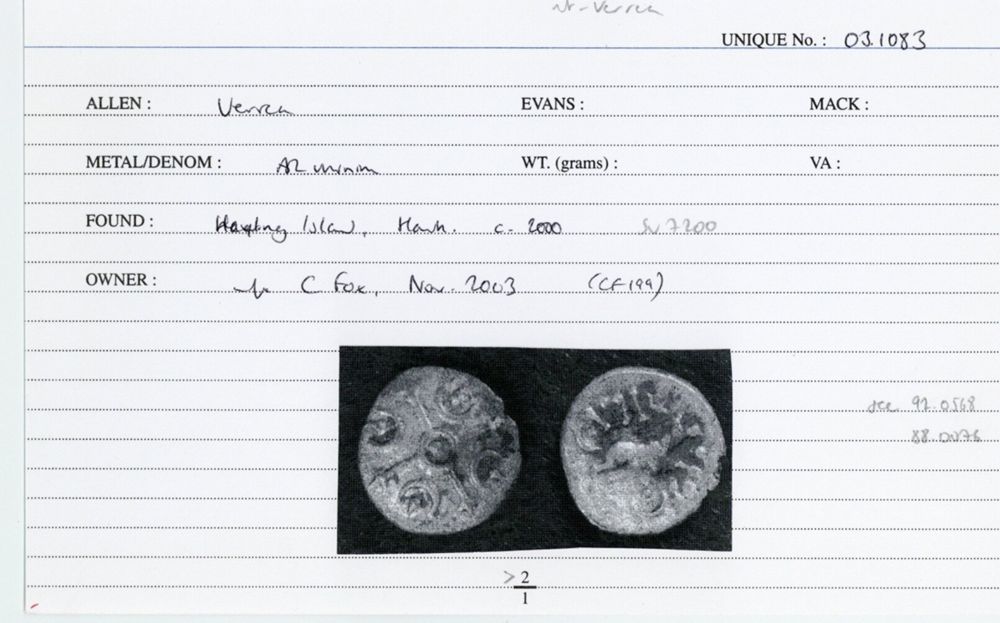 Verrea
UNIQUE No. : 03.1083
ALLEN : Verrea EVANS : MACK :
METAL/DENOM : AR minim WT. (grams) : VA :
FOUND : Hayling Island, Hants. c. 2000 SV 7200
OWNER : C Fox, Nov. 2003 (CF199)
see 92.0568
88.0076
> 2
1